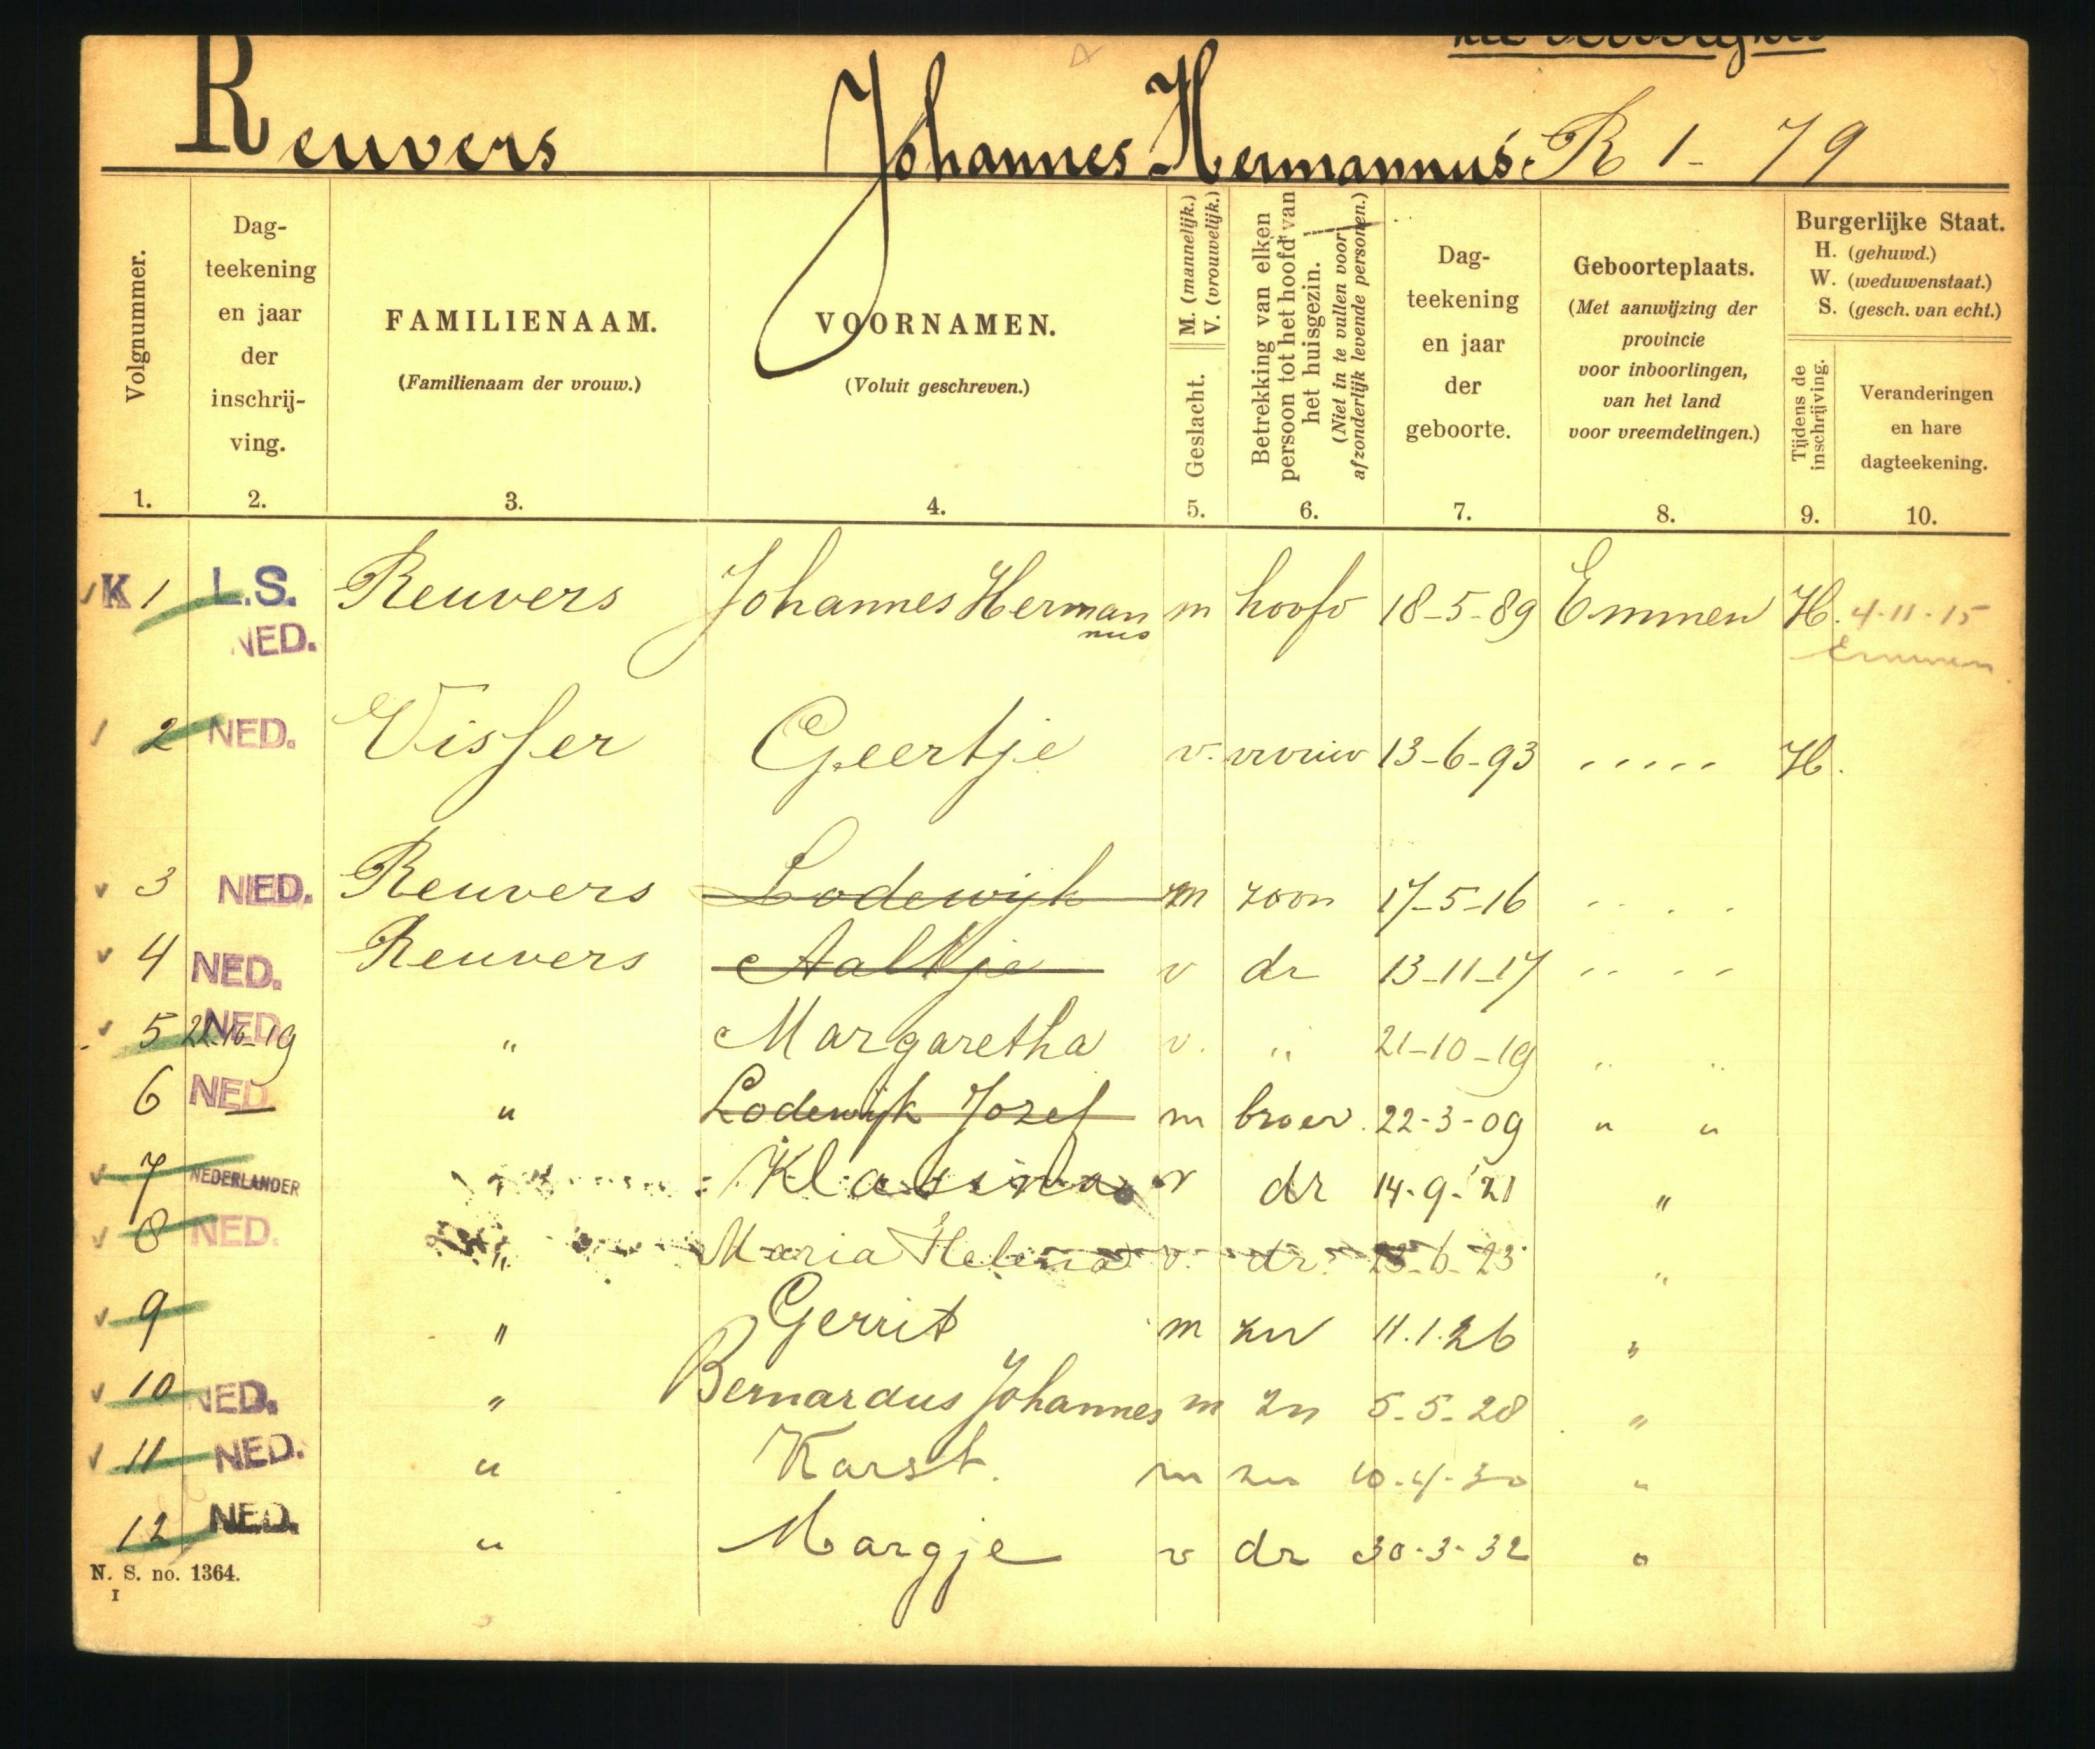 Reuvers Johannes Hermannus. R 1 - 79
Volgnummer.
Dag-
teekening
en jaar
der
inschrij-
ving.
FAMILIENAAM.
(Familienaam der vrouw.)
VOORNAMEN.
(Voluit geschreven.)
Geslacht. M. (mannelijk.)
V. (vrouwelijk.)
Betrekking van elken
persoon tot het hoofd van
het huisgezin.
(Niet in te vullen voor
afzonderlijk levende personen.)
Dag-
teekening
en jaar
der
geboorte.
Geboorteplaats.
(Met aanwijzing der
provincie
voor inboorlingen,
van het land
voor vreemdelingen.)
Burgerlijke Staat.
H. (gehuwd.)
W. (weduwenstaat.)
S. (gesch. van echt.)
Tijdens de
inschrijving.
Veranderingen
en hare
dagteekening.
1. 2. 3. 4. 5. 6. 7. 8. 9. 10.
K 1 L.S. Reuvers Johannes Herman m hoofd 18-5-89 Emmen H. 4-11-15
NED. nus Emmen
2 NED. Visser Geertje v. vrouw 13-6-93 " " H.
3 NED. Reuvers Lodewijk m zoon 17-5-16 " "
4 NED. Reuvers Aaltje v dr 13-11-17 " "
5 NED. 22-10-19 " Margaretha v. " 21-10-19 " "
6 NED. " Lodewijk Jozef m broer 22-3-09 " "
7 NEDERLANDER " Klasina v dr 14-9-'21 "
8 NED. " Maria Helena v. dr. -6-23 "
9 " Gerrit m zn 11.1.26 "
10 NED. " Bernardus Johannes m zn 5-5-28 "
11 NED. " Karst. m zn 10-4-30 "
12 NED. " Margje v dr 30-3-32 "
N. S. no. 1364.
I